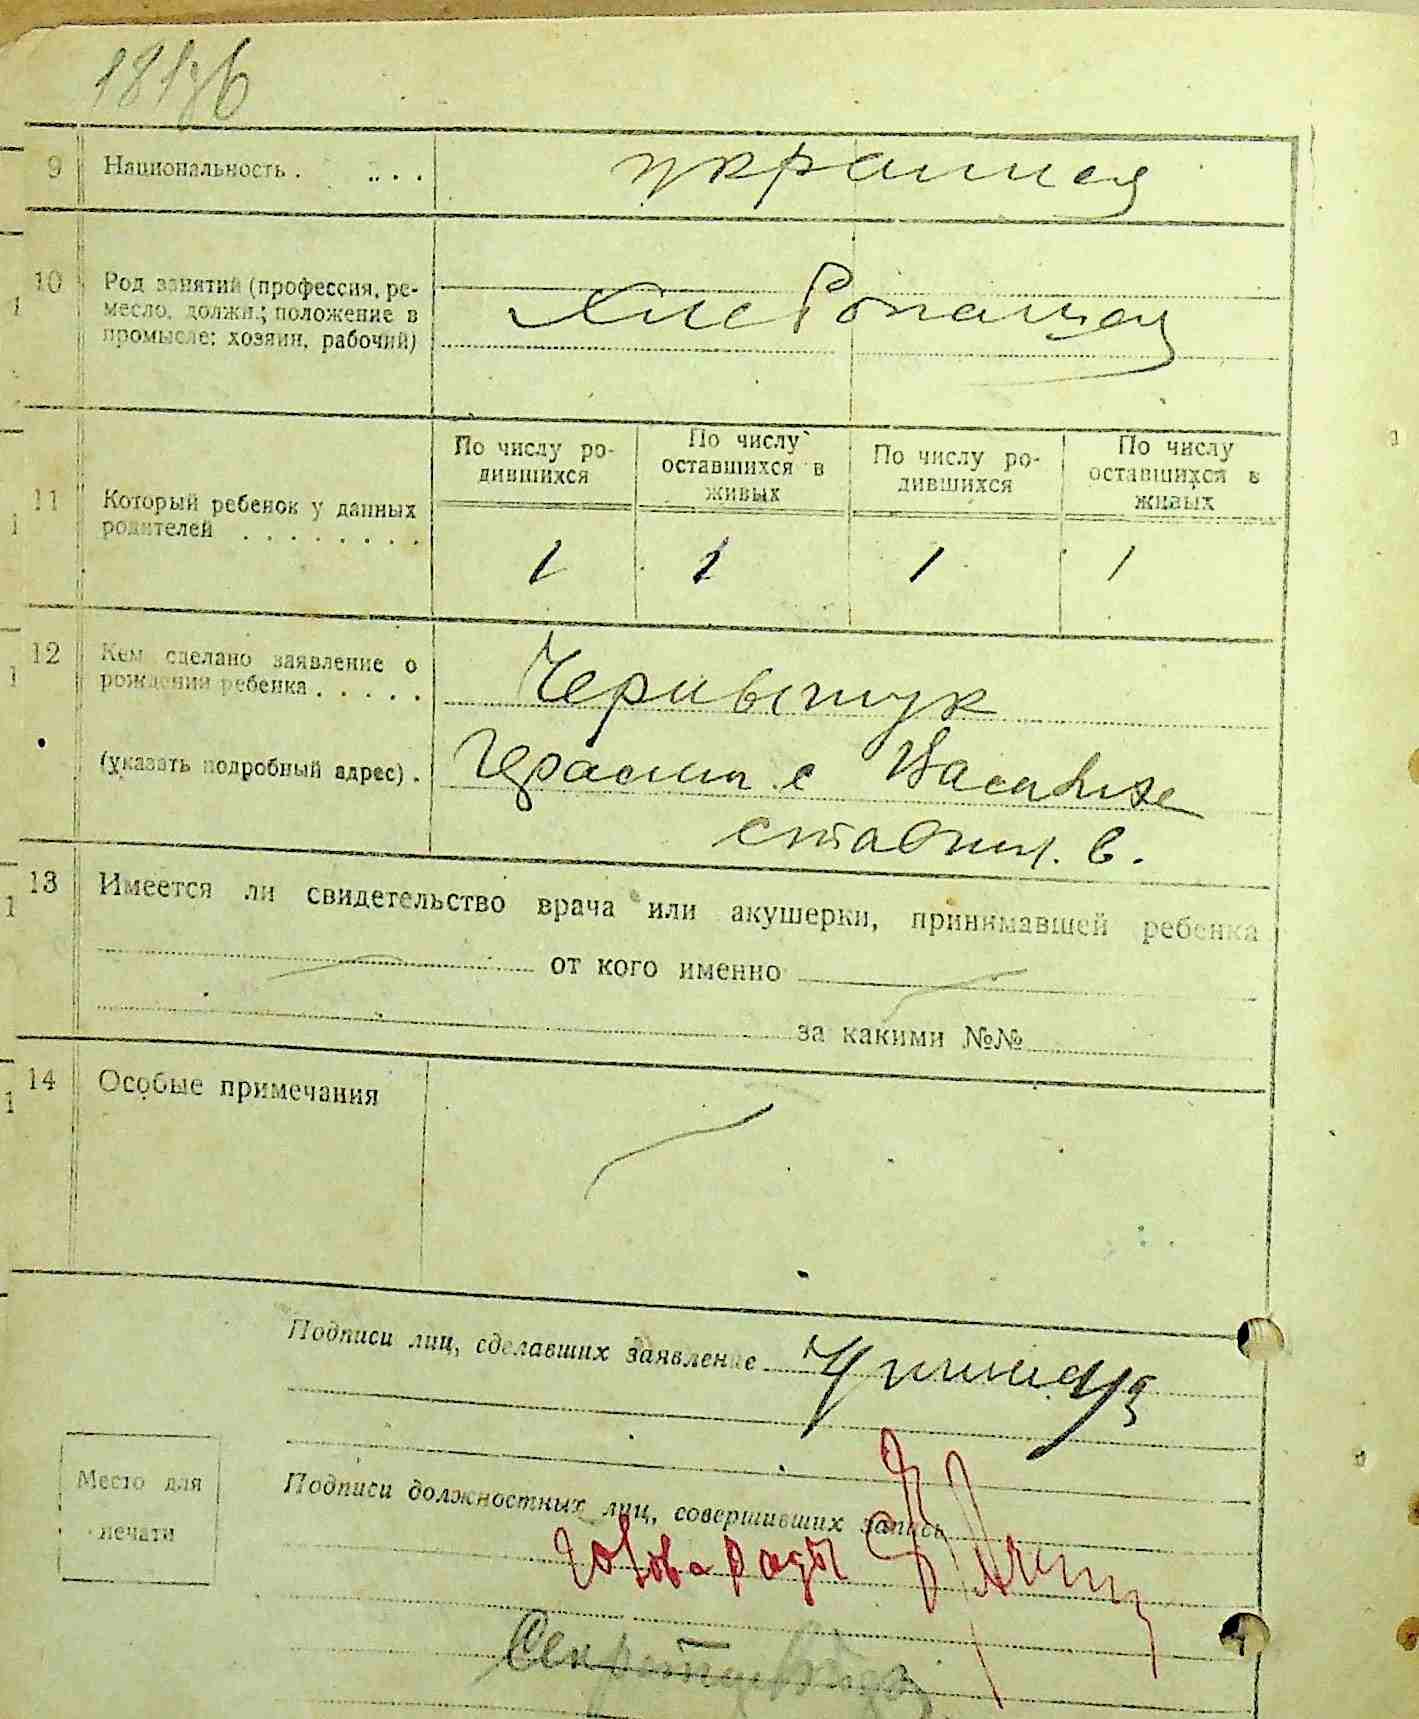 181зв
9 Национальность . . . .
украинец
10 Род занятий (профессия, ре-
месло, должн.; положение в
промысле: хозяин, рабочий)
Хлебопашец
11 Который ребенок у данных
родителей . . . . . . . .
По числу ро-
дившихся
По числу
оставшихся в
живых
По числу ро-
дившихся
По числу
оставшихся в
живых
1 1 1 1
12 Кем сделано заявление о
рождении ребенка . . . . .
(указать подробный адрес) .
Герасим с
13 Имеется ли свидетельство врача или акушерки, принимавшей ребенка
от кого именно
за какими №№
14 Особые примечания
Подписи лиц, сделавших заявление
Место для
печати
Подписи должностных лиц, совершивших запись
голова ради
Секретар